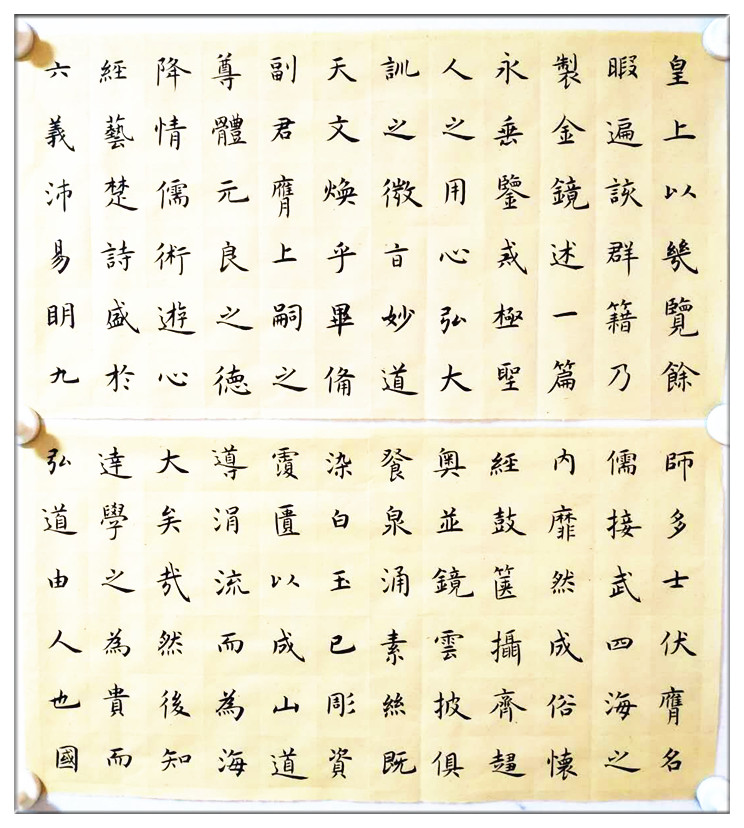 皇上以幾覽餘
暇遍該群籍乃
製金鏡述一篇
永垂鑒戒極聖
人之用心弘大
訓之微旨妙道
天文煥乎畢俻
副君膺上嗣之
尊體元良之德
降情儒術遊心
經藝楚詩盛於
六義沛易明九
師多士伏膺名
儒接武四海之
內靡然成俗懷
經鼓篋攝齊趨
奧並鏡雲披俱
飡泉涌素絲既
染白玉已彫資
覆匱以成山道
導涓流而為海
大矣哉然後知
達學之為貴而
弘道由人也國